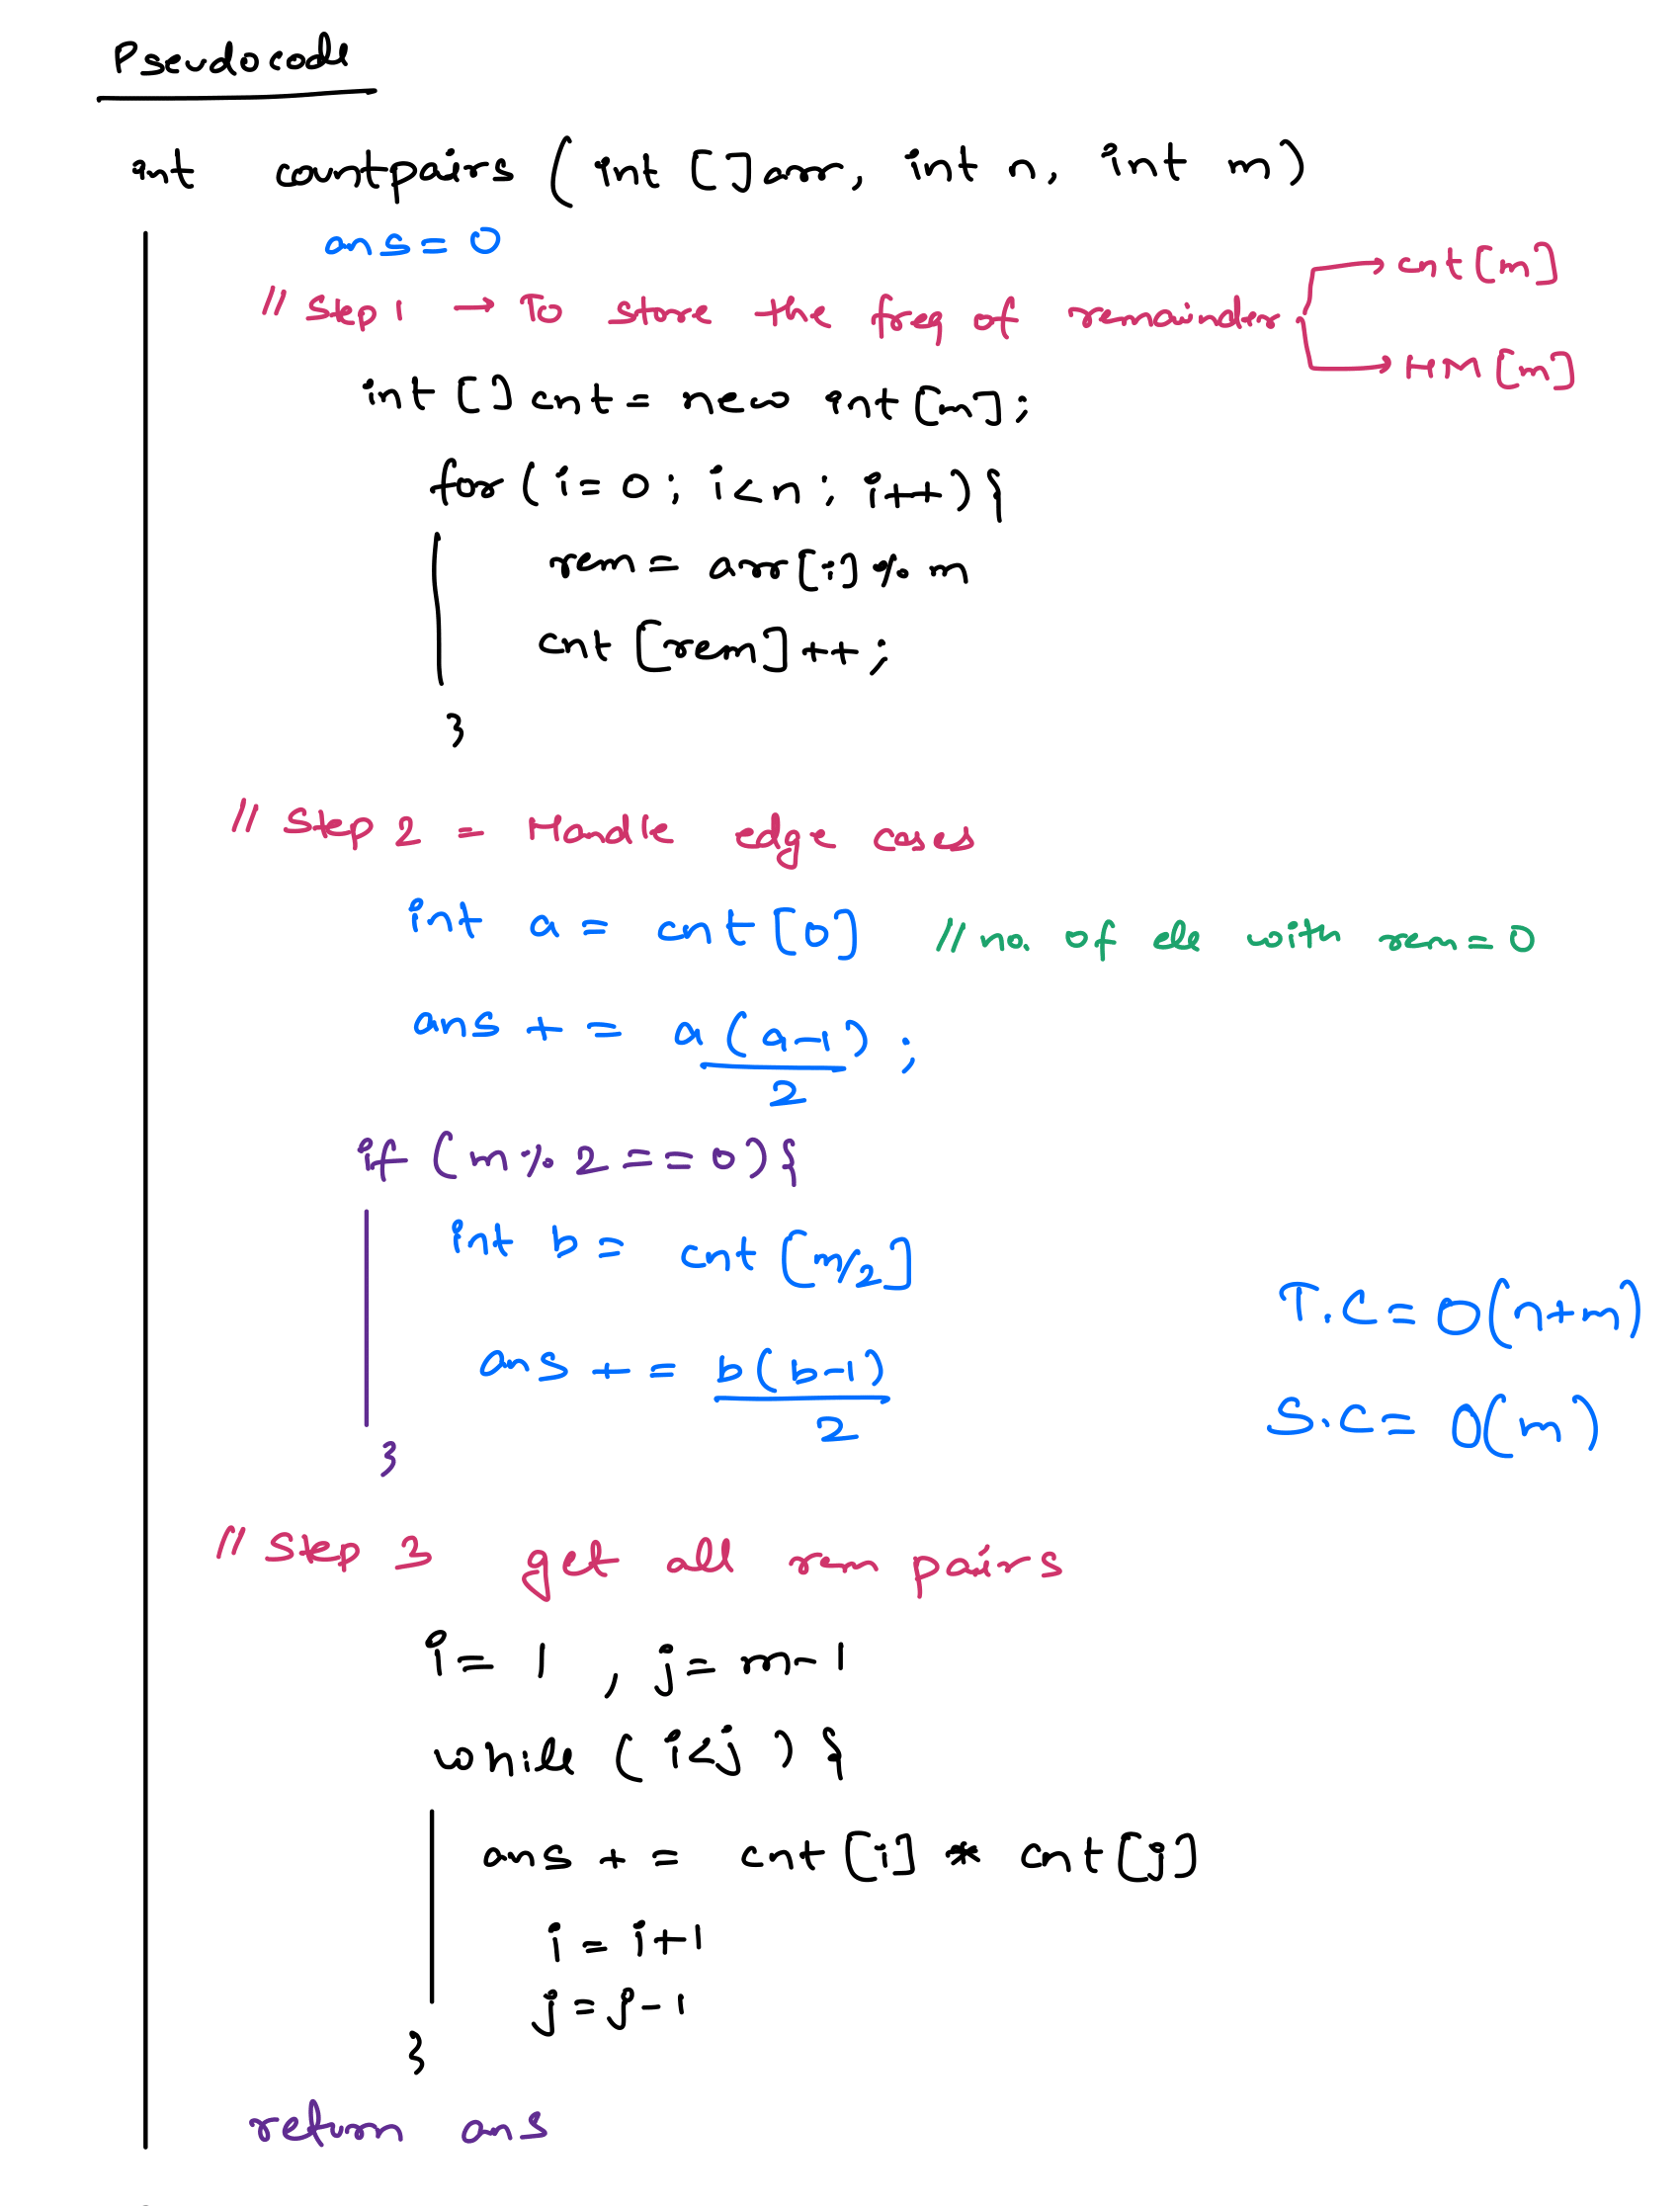 Pseudocode
int countpairs (int []arr, int n, int m)
ans = 0
// Step 1 → To store the freq of remainder → cnt[m]
→ HM[m]
int [] cnt = new int[m];
for (i = 0; i < n; i++) {
rem = arr[i] % m
cnt [rem]++;
}
// Step 2 = Handle edge cases
int a = cnt [0] // no. of ele with rem = 0
ans + = a (a-1) / 2 ;
if (m % 2 == 0) {
int b = cnt [m/2]
T.C = O(n+m)
ans + = b (b-1) / 2
S.C = O(m)
}
// Step 3 get all rem pairs
i = 1 , j = m-1
while ( i<j ) {
ans + = cnt [i] * cnt [j]
i = i+1
j = j-1
}
return ans